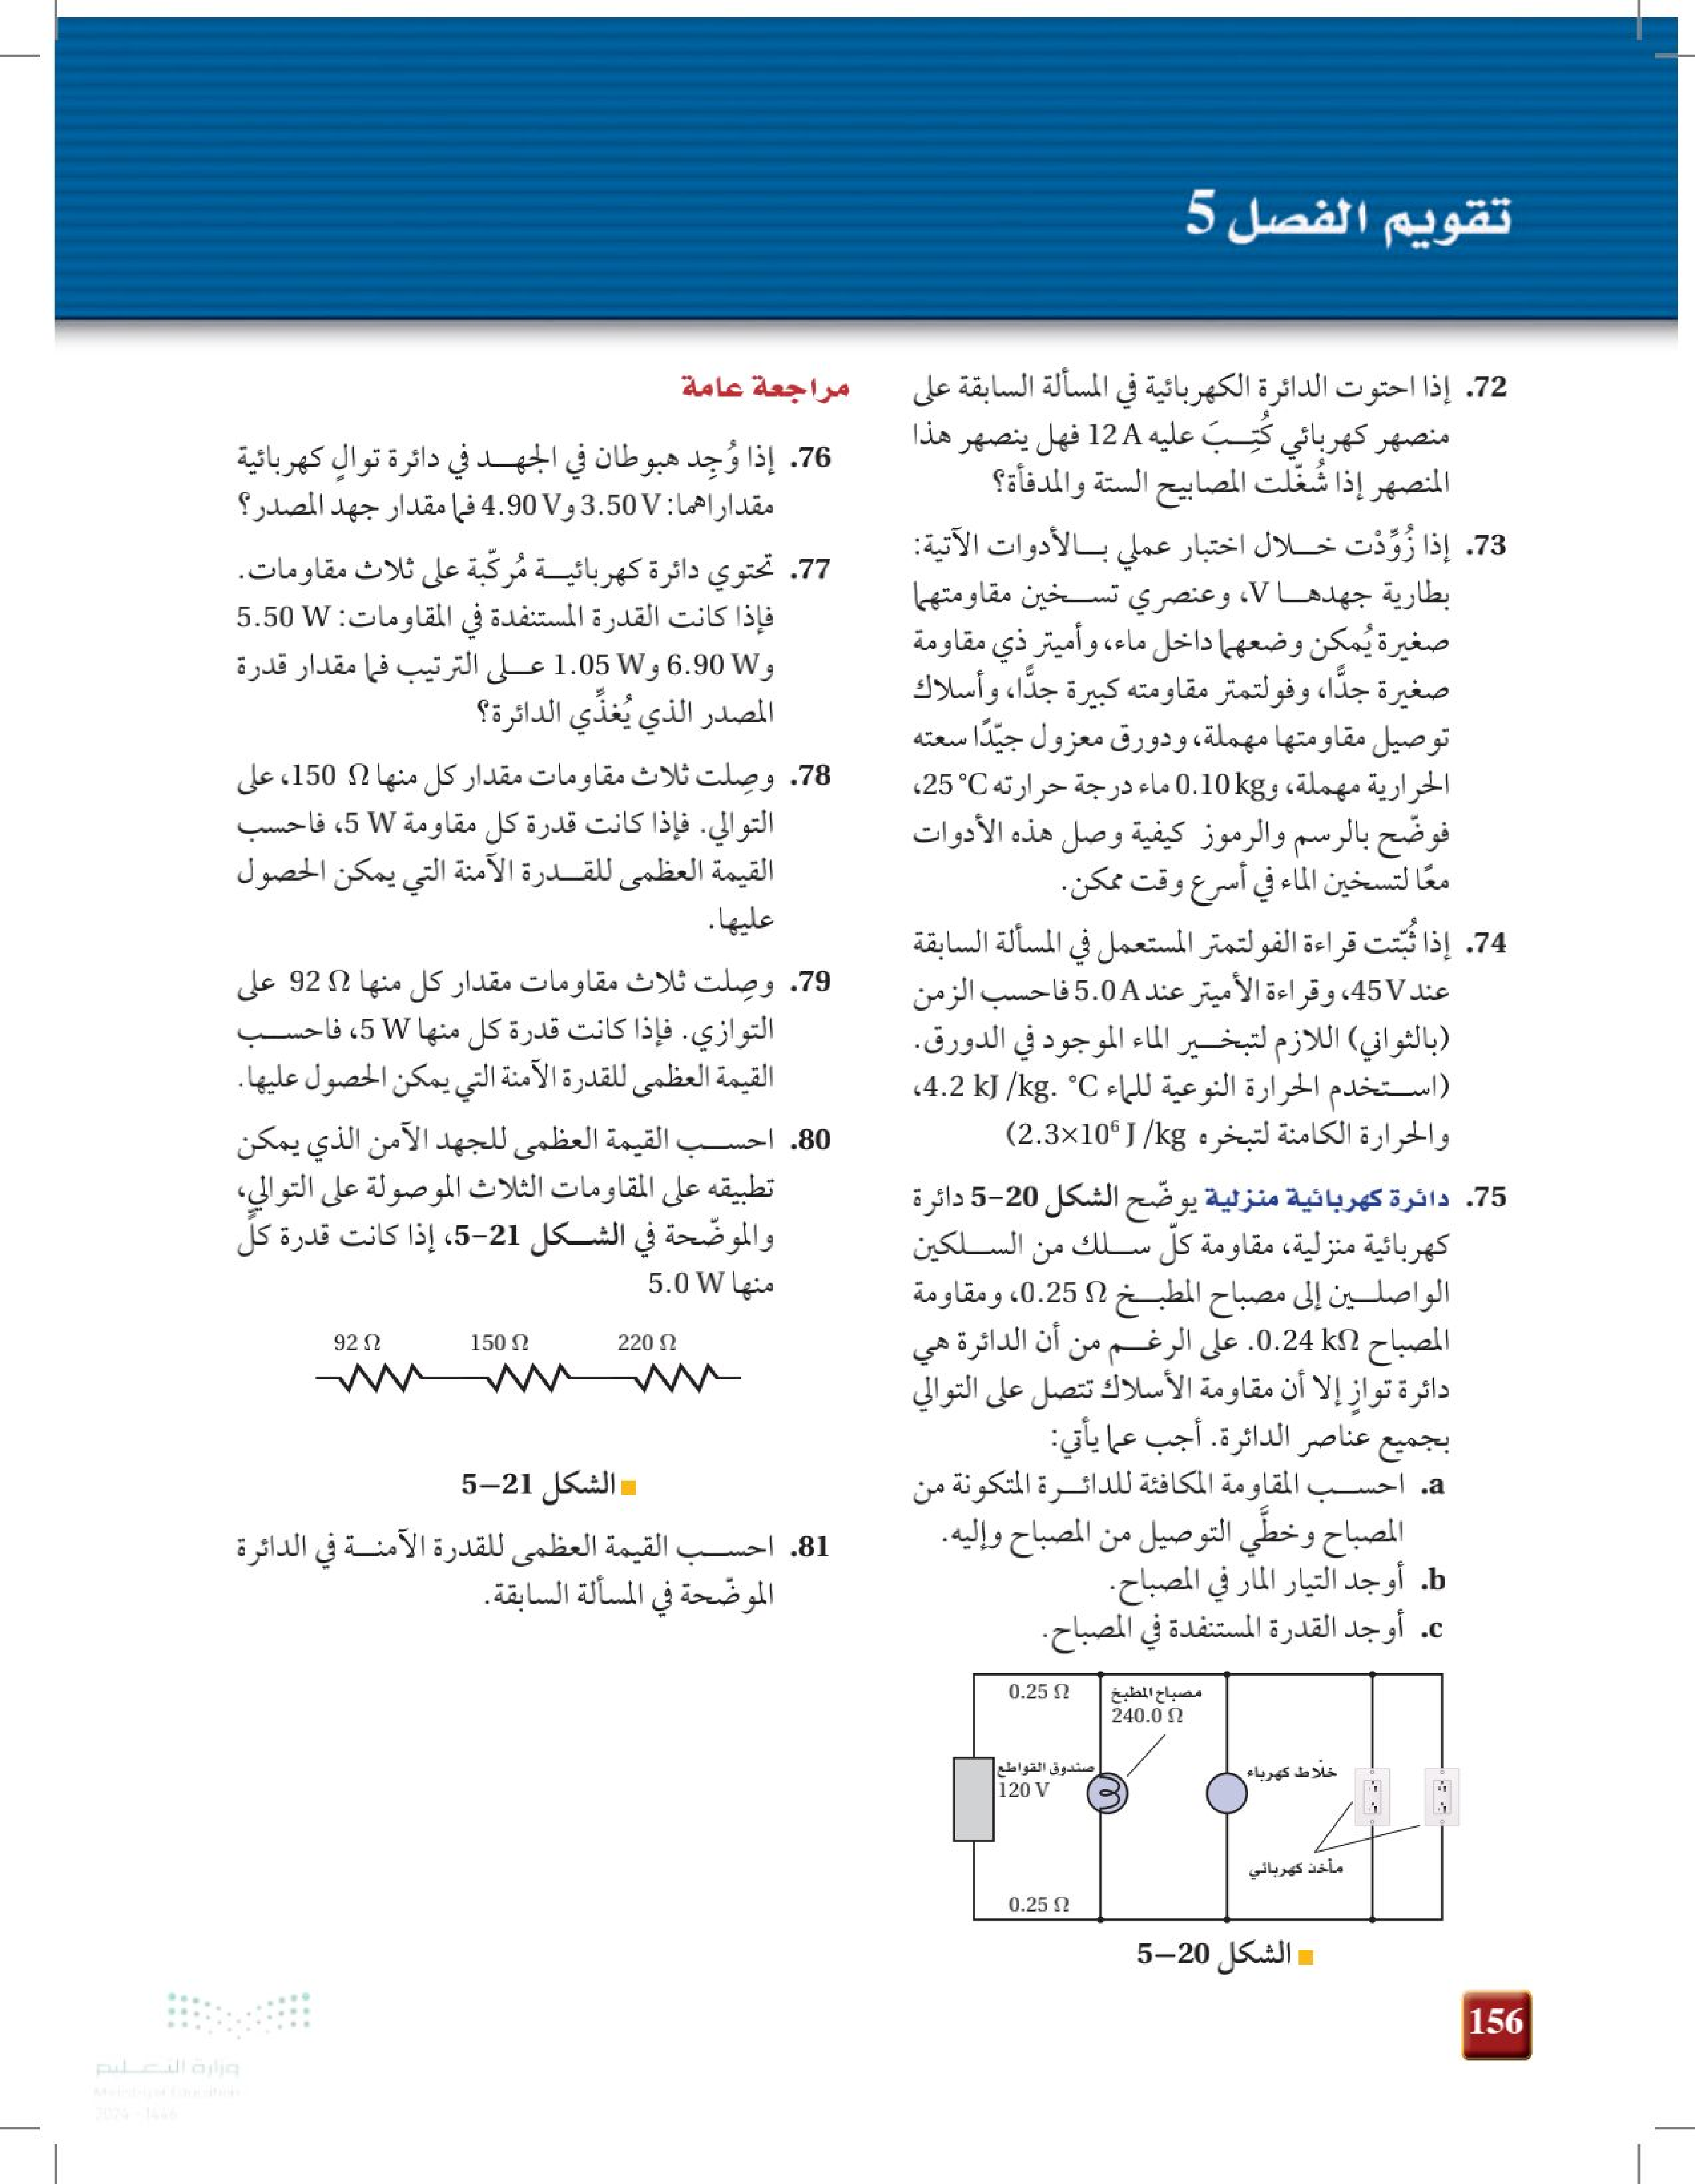 تقويم الفصل 5
72. إذا احتوت الدائرة الكهربائية في المسألة السابقة على
منصهر كهربائي كُتِبَ عليه 12 A فهل ينصهر هذا
المنصهر إذا شُغّلت المصابيح الستة والمدفأة؟
73. إذا زُوِّدْت خلال اختبار عملي بالأدوات الآتية:
بطارية جهدها V، وعنصري تسخين مقاومتهما
صغيرة يُمكن وضعهما داخل ماء، وأميتر ذي مقاومة
صغيرة جدًّا، وفولتمتر مقاومته كبيرة جدًّا، وأسلاك
توصيل مقاومتها مهملة، ودورق معزول جيّدًا سعته
الحرارية مهملة، و0.10 kg ماء درجة حرارته 25 °C،
فوضّح بالرسم والرموز كيفية وصل هذه الأدوات
معًا لتسخين الماء في أسرع وقت ممكن.
74. إذا ثُبّتت قراءة الفولتمتر المستعمل في المسألة السابقة
عند 45 V، وقراءة الأميتر عند 5.0 A فاحسب الزمن
(بالثواني) اللازم لتبخير الماء الموجود في الدورق.
(استخدم الحرارة النوعية للماء 4.2 kJ /kg. °C،
والحرارة الكامنة لتبخره 2.3×10⁶ J /kg)
75. دائرة كهربائية منزلية يوضّح الشكل 20-5 دائرة
كهربائية منزلية، مقاومة كلّ سلك من السلكين
الواصلين إلى مصباح المطبخ 0.25 Ω، ومقاومة
المصباح 0.24 kΩ. على الرغم من أن الدائرة هي
دائرة توازٍ إلا أن مقاومة الأسلاك تتصل على التوالي
بجميع عناصر الدائرة. أجب عما يأتي:
a. احسب المقاومة المكافئة للدائرة المتكونة من
المصباح وخطَّي التوصيل من المصباح وإليه.
b. أوجد التيار المار في المصباح.
c. أوجد القدرة المستنفدة في المصباح.
0.25 Ω
مصباح المطبخ
240.0 Ω
صندوق القواطع
120 V
خلّاط كهرباء
مأخذ كهربائي
0.25 Ω
الشكل 20–5
مراجعة عامة
76. إذا وُجِد هبوطان في الجهد في دائرة توالٍ كهربائية
مقداراهما: 3.50 V و4.90 V فما مقدار جهد المصدر؟
77. تحتوي دائرة كهربائية مُركّبة على ثلاث مقاومات.
فإذا كانت القدرة المستنفدة في المقاومات: 5.50 W
و6.90 W و1.05 W على الترتيب فما مقدار قدرة
المصدر الذي يُغذِّي الدائرة؟
78. وصِلت ثلاث مقاومات مقدار كل منها 150 Ω، على
التوالي. فإذا كانت قدرة كل مقاومة 5 W، فاحسب
القيمة العظمى للقدرة الآمنة التي يمكن الحصول
عليها.
79. وصِلت ثلاث مقاومات مقدار كل منها 92 Ω على
التوازي. فإذا كانت قدرة كل منها 5 W، فاحسب
القيمة العظمى للقدرة الآمنة التي يمكن الحصول عليها.
80. احسب القيمة العظمى للجهد الآمن الذي يمكن
تطبيقه على المقاومات الثلاث الموصولة على التوالي،
والموضّحة في الشكل 21-5، إذا كانت قدرة كلٍّ
منها 5.0 W
92 Ω 150 Ω 220 Ω
الشكل 21–5
81. احسب القيمة العظمى للقدرة الآمنة في الدائرة
الموضّحة في المسألة السابقة.
156
وزارة التعليم
Ministry of Education
2024 - 1446